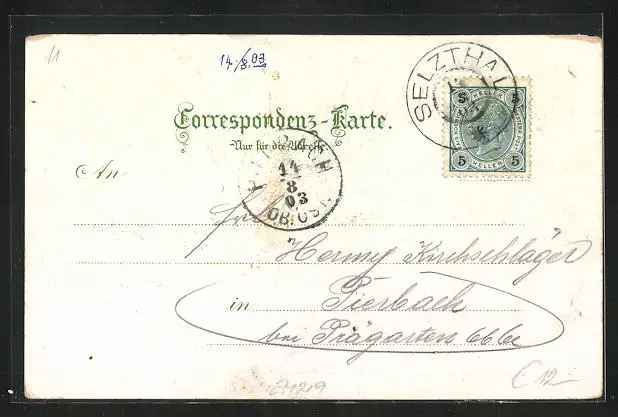 11
14/8.03
SELZTHAL
5 HELLER 5
5 HELLER 5
Correspondenz-Karte.
Nur für die Adresse.
14
8
03
OB:ÖST.
An
Frl
Hermy Kirchschläger
in Pierbach
bei Prägarten
C12